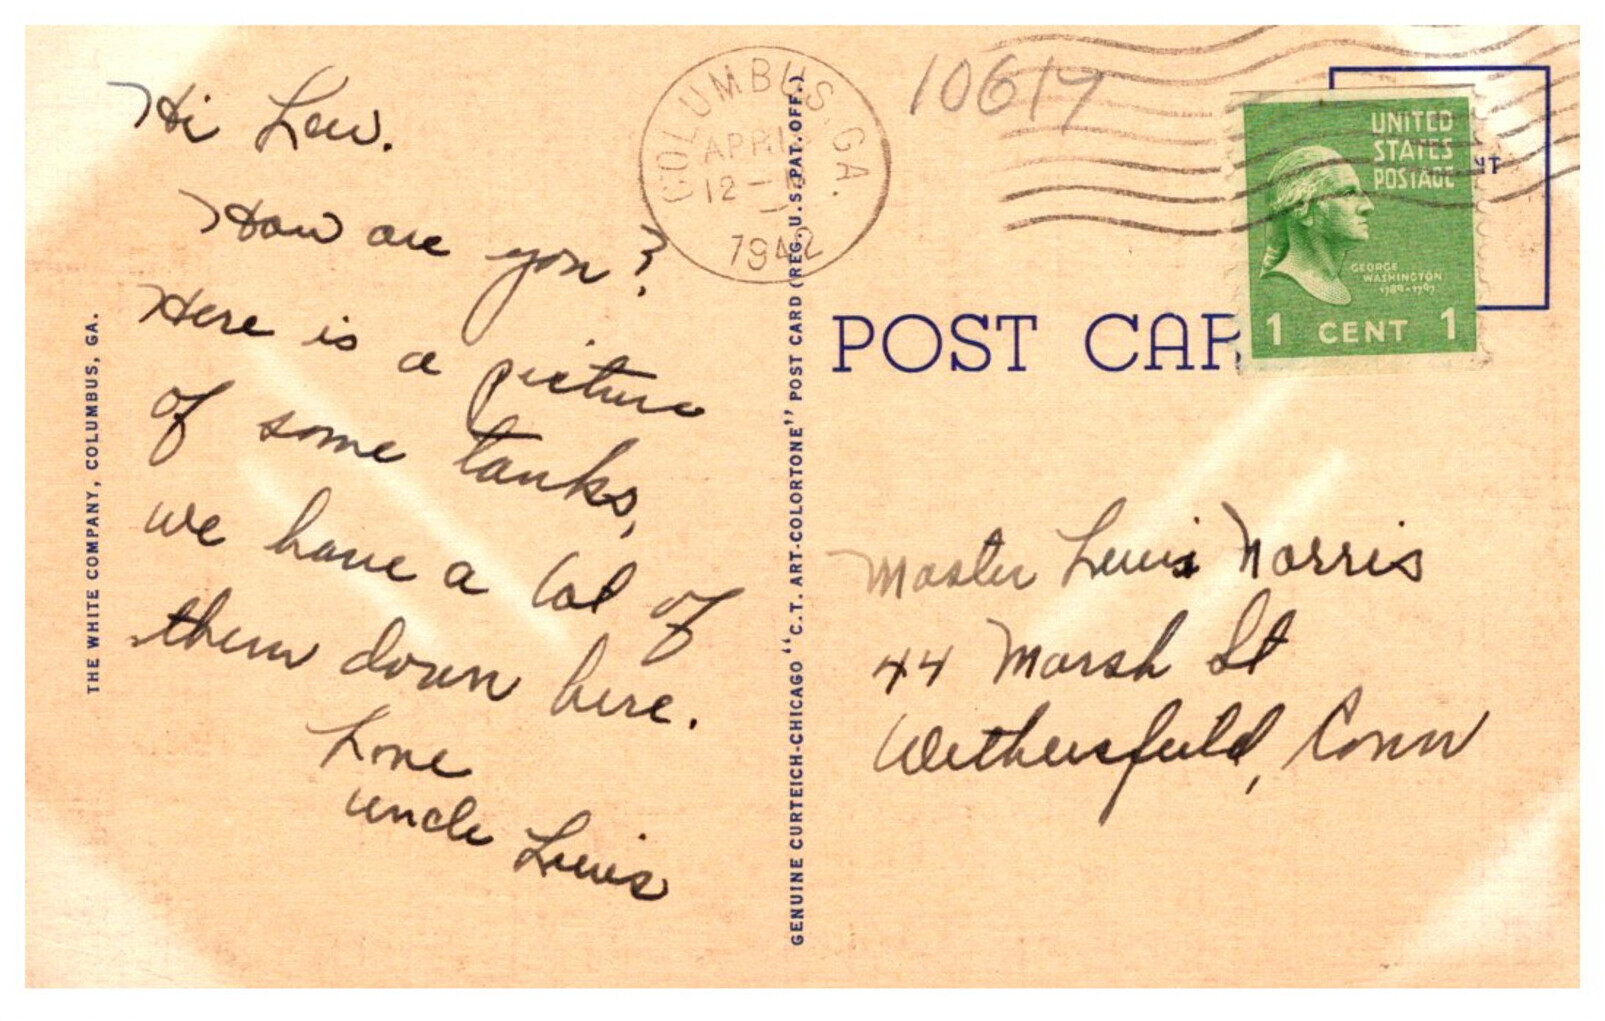 Hi Lew.
How are you?
Here is a picture
of some tanks,
we have a lot of
them down here.
Love
uncle Lewis
THE WHITE COMPANY, COLUMBUS, GA.
GENUINE CURTEICH-CHICAGO "C.T. ART-COLORTONE" POST CARD (REG. U.S. PAT. OFF.)
COLUMBUS, GA.
APR
12 -
1942
10617
UNITED
STATES
POSTAGE
GEORGE
WASHINGTON
1789-1797
1 CENT 1
POST CAR
Master Lewis Norris
44 Marsh St
Wethersfield, Conn